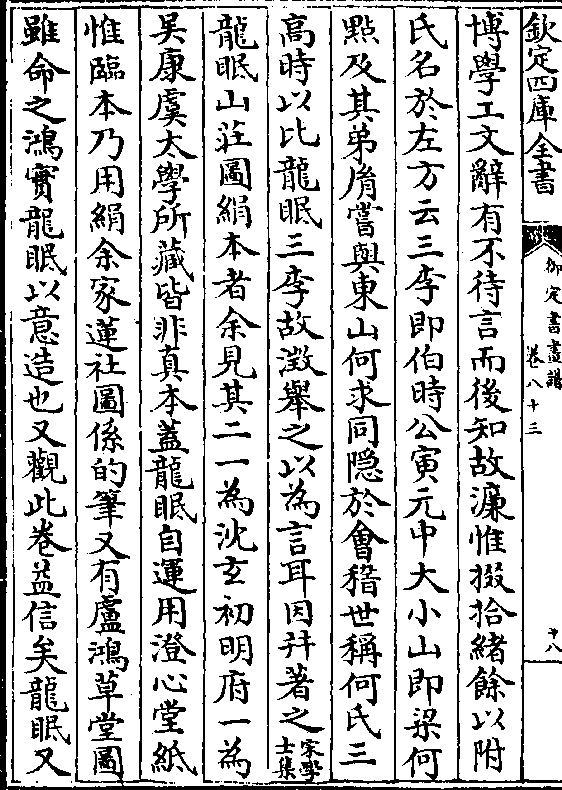 欽定四庫全書
御定書畫譜
卷八十三
十八
博學工文辭有不待言而後知故濂惟掇拾緒餘以附
氏名於左方云三李即伯時公寅元中大小山即梁何
點及其弟㣧嘗與東山何求同隱於會稽世稱何氏三
高時以比龍眠三李故澂舉之以為言耳因幷著之宋學士集
龍眠山莊圖絹本者余見其二一為沈玄初明府一為
吳康虞太學所藏皆非真本蓋龍眠自運用澄心堂紙
惟臨本乃用絹余家蓮社圖係的筆又有盧鴻草堂圖
雖命之鴻實龍眠以意造也又觀此卷益信矣龍眠又